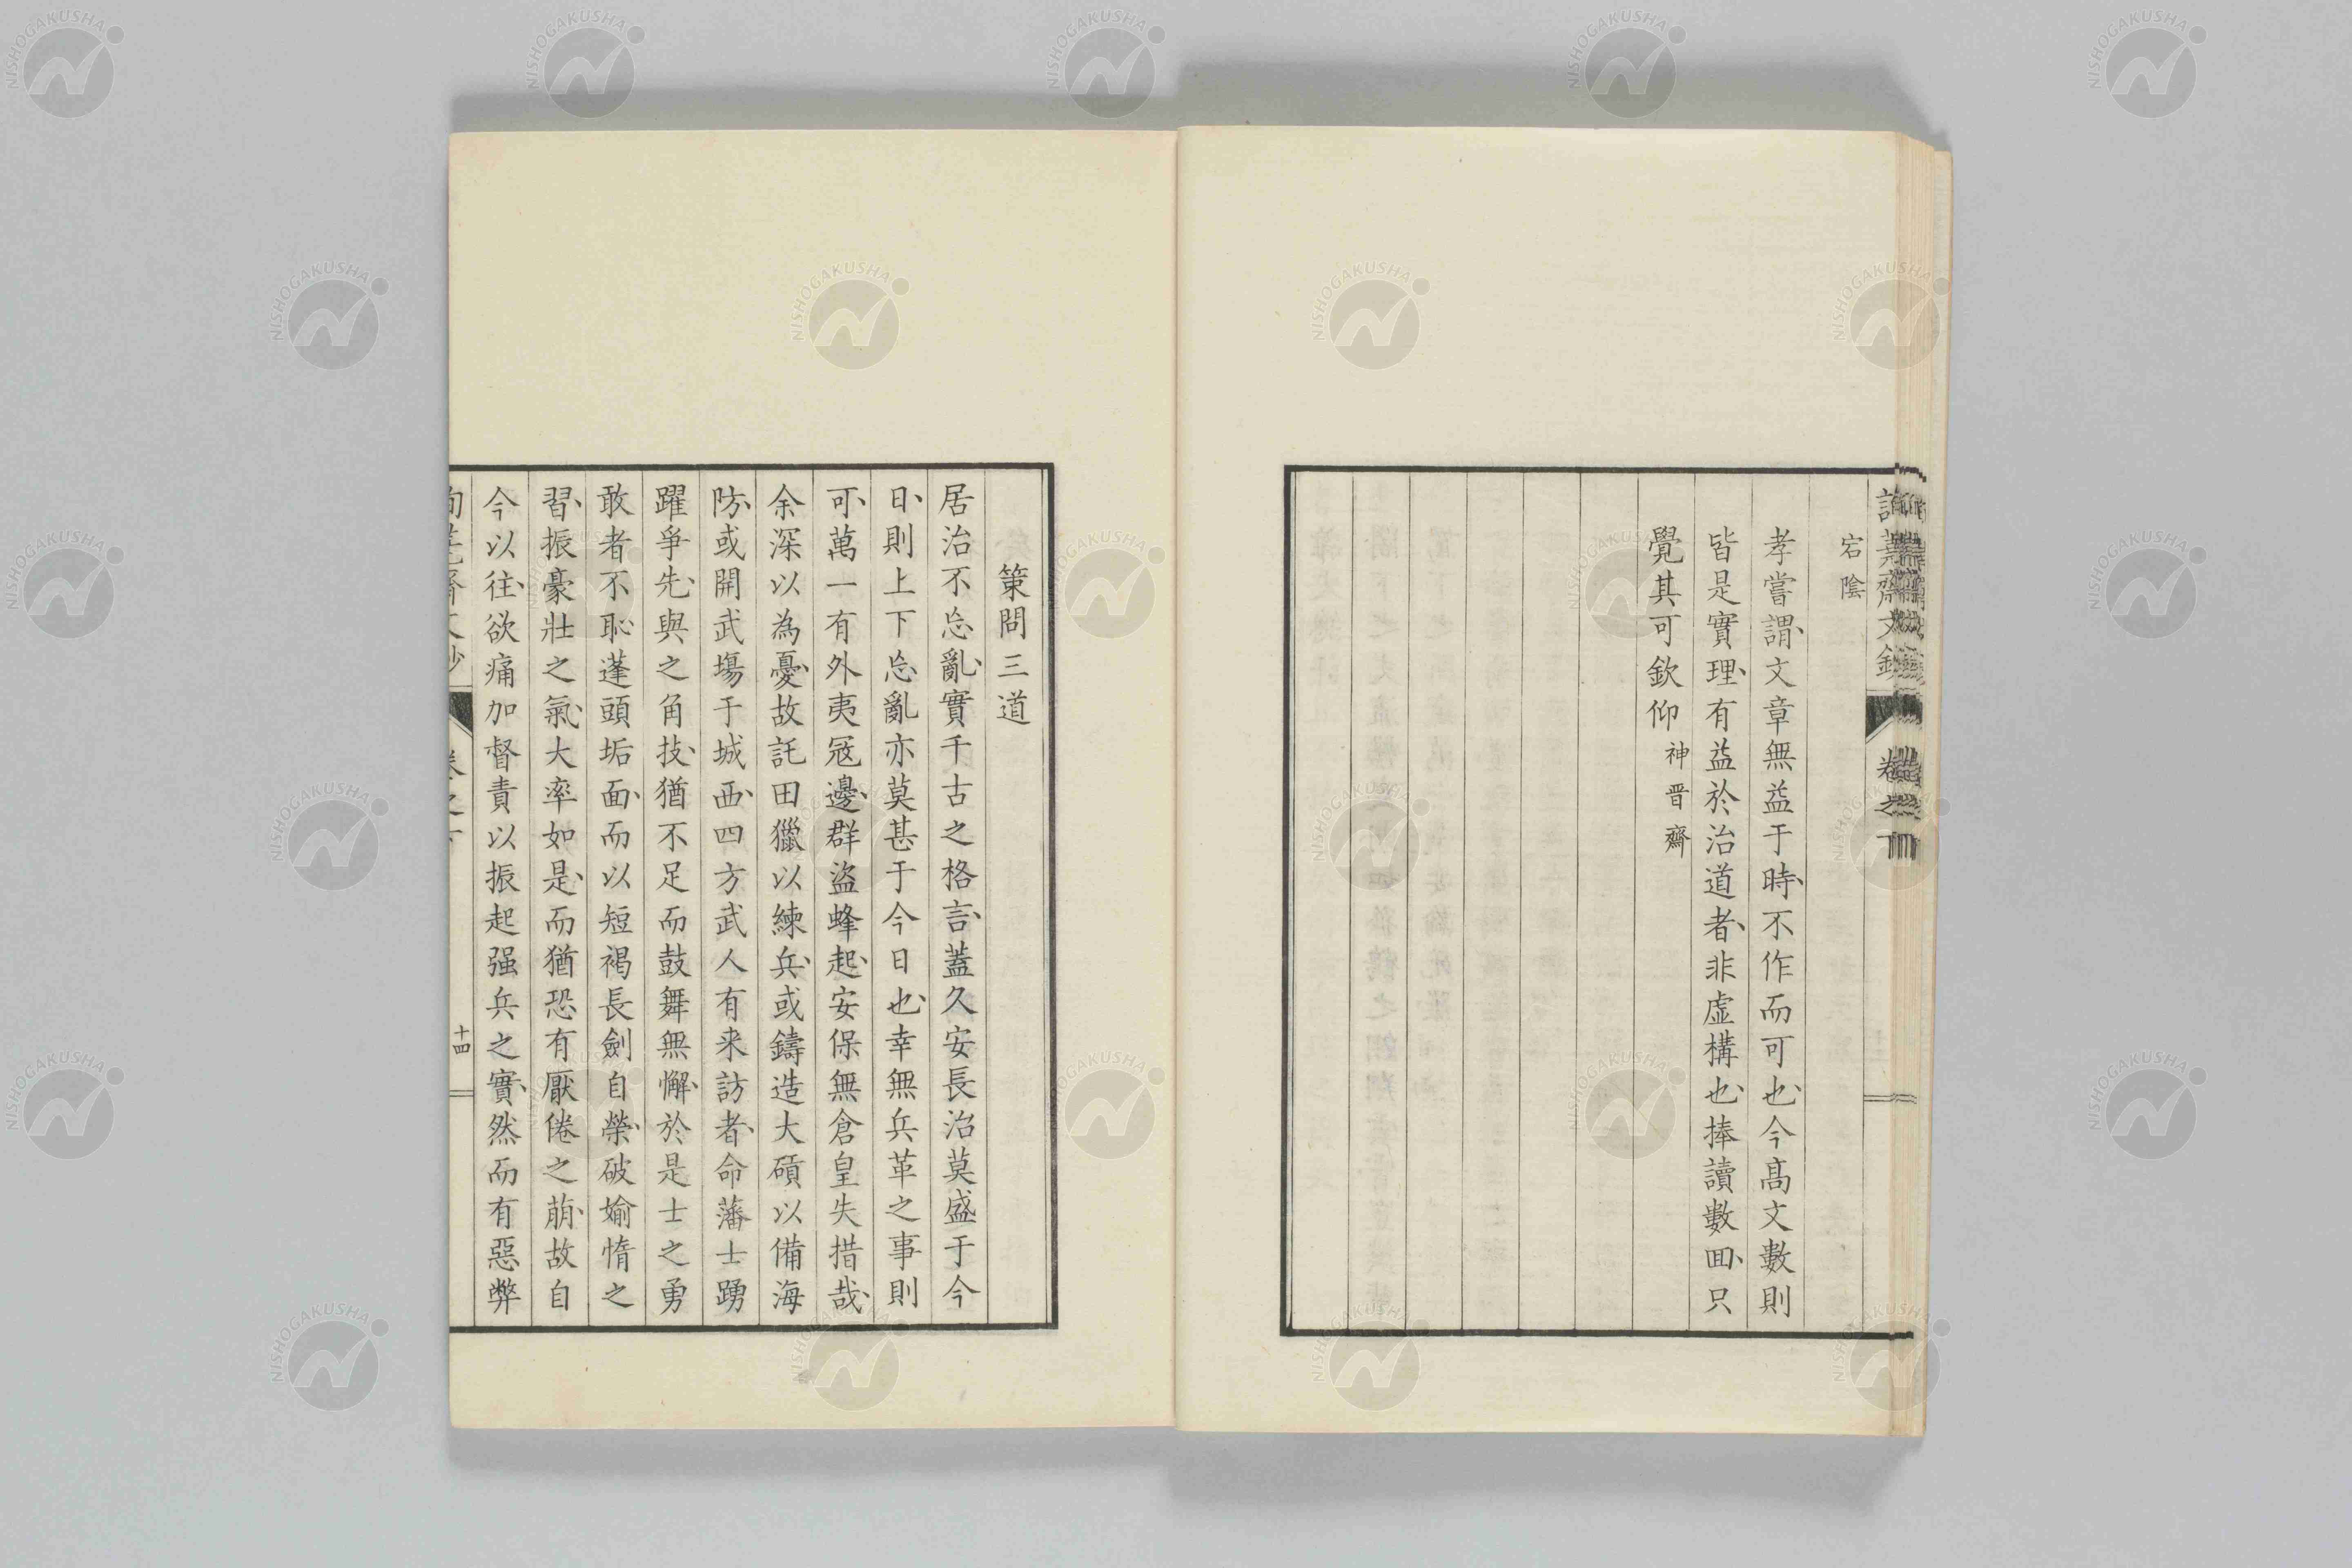 宕陰
孝嘗謂、文章無益于時、不作而可也、今高文數則
皆是實理、有益於治道者、非虛構也、捧讀數回、只
覺其可欽仰 神晋齋
卷之下
策問三道
居治不忘亂、實千古之格言、蓋久安長治莫盛于今
日、則上下忘亂亦莫甚于今日也、幸無兵革之事則
可、萬一有外夷冦邊、群盜蜂起、安保無倉皇失措哉、
余深以為憂、故託田獵以練兵、或鑄造大礩以備海
防、或開武場于城西、四方武人有来訪者、命藩士踴
躍爭先、與之角技、猶不足而鼓舞無懈、於是士之勇
敢者不恥蓬頭垢面、而以短褐長劍自榮、破婾惰之
習、振豪壯之氣、大率如是、而猶恐有厭倦之萠、故自
今以往、欲痛加督責以振起强兵之實、然而有惡弊
十四
NISHOGAKUSHA